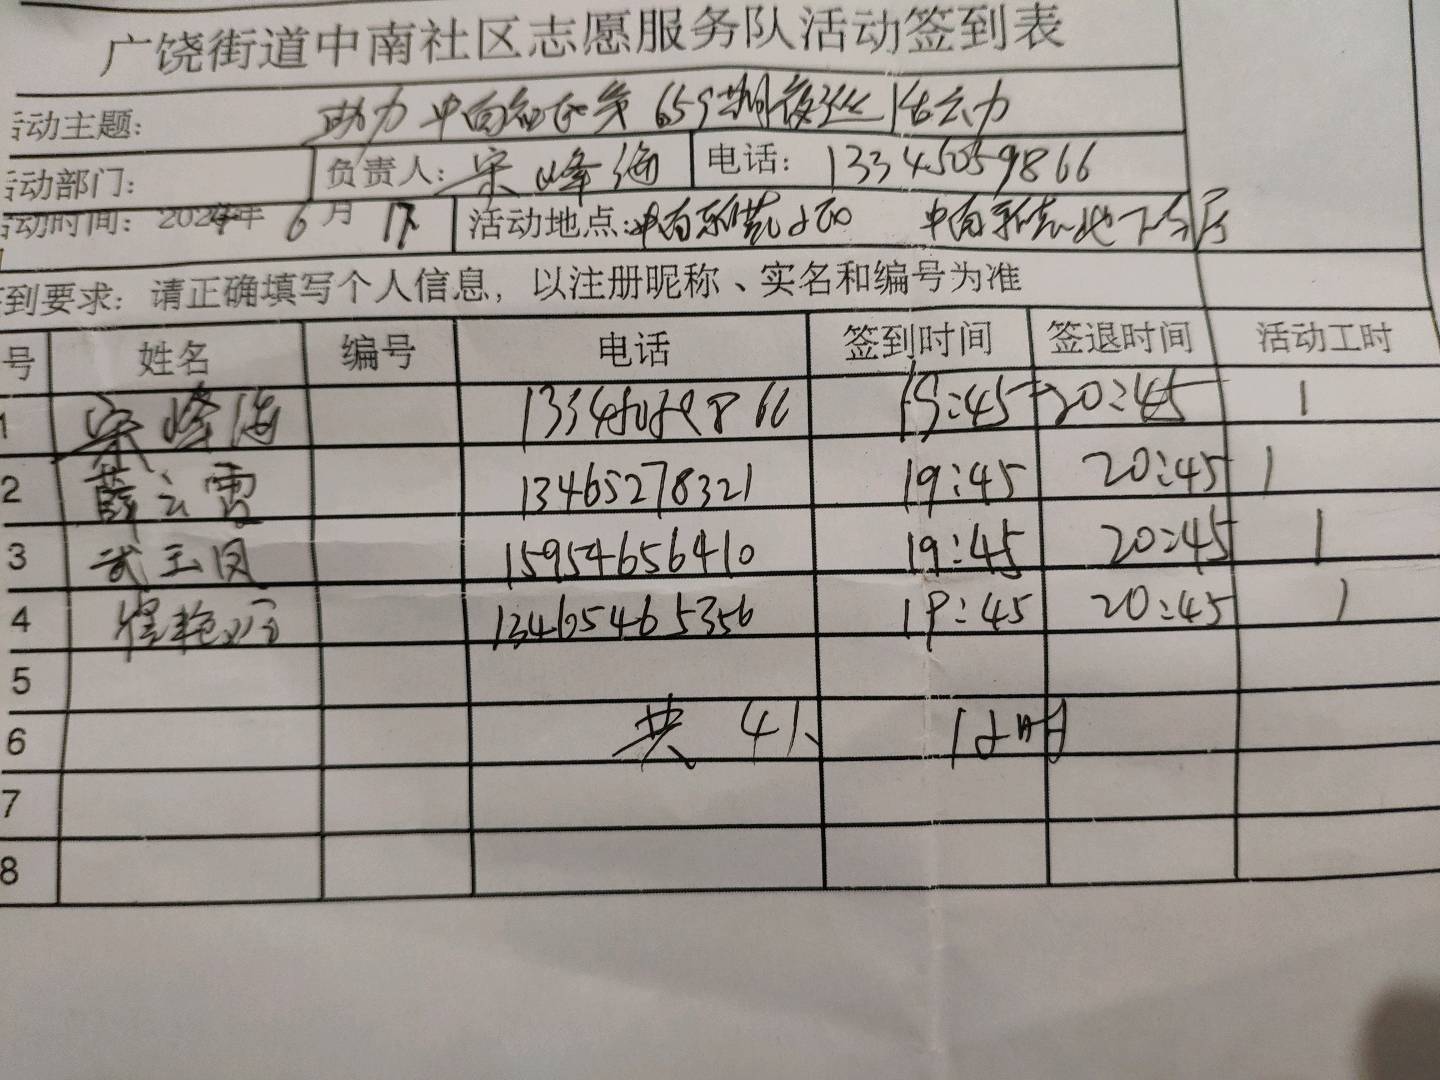 广饶街道中南社区志愿服务队活动签到表
活动主题: 助力中南社区第659期夜
活动部门: 负责人: 宋峰海 电话: 13345059866
活动时间: 2024年 6月 17 活动地点: 中南
签到要求: 请正确填写个人信息, 以注册昵称、实名和编号为准
号 姓名 编号 电话 签到时间 签退时间 活动工时
1 宋峰海 13345059866 19:45 20:45 1
2 薛云霞 13465278321 19:45 20:45 1
3 武玉凤 15954656410 19:45 20:45 1
4 艳 13465465356 19:45 20:45 1
5
6 共 4人 1小时
7
8